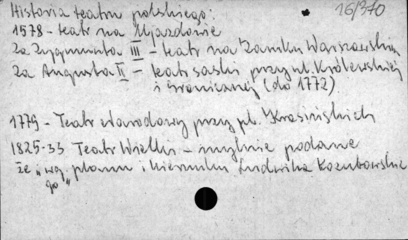 Historia teatru polskiego: 16/370
1578 - teatr na Ujazdowie
Za Zygmunta III - teatr na Zamku Warszawskim
Za Augusta II - teatr saski przy ul. Królewskiej
i Granicznej (do 1772)
1779 - Teatr Narodowy przy pl. Krasińskich
1825-33 Teatr Wielki - mylnie podane
że „wg. planu i kierunku Ludwika Kozubowskie
go"